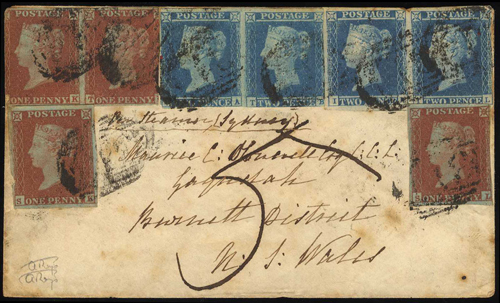 POSTAGE POSTAGE POSTAGE POSTAGE POSTAGE POSTAGE
ONE PENNY ONE PENNY TWO PENCE TWO PENCE TWO PENCE TWO PENCE
Per Steamer (Sydney)
POSTAGE POSTAGE
Maurice C. O'Connell Esq.
5
ONE PENNY ONE PENNY
Burnett District
N. S. Wales